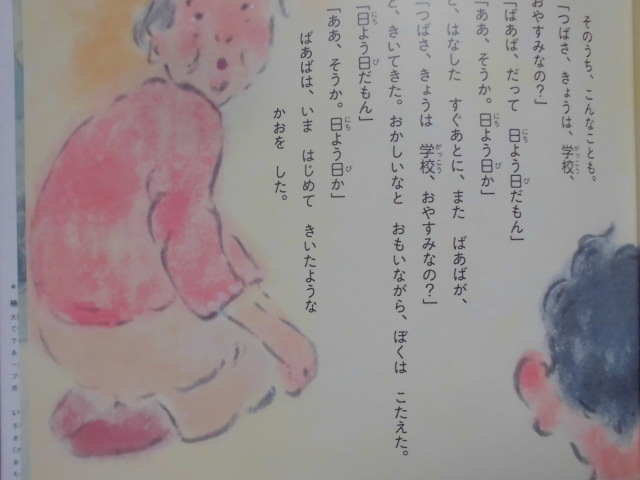 そのうち、こんなことも。
「つばさ、きょうは、学校、
おやすみなの？」
「ばあば、だって 日よう日だもん」
「ああ、そうか。日よう日か」
と、はなした すぐあとに、また ばあばが、
「つばさ、きょうは 学校、おやすみなの？」
と、きいてきた。おかしいなと おもいながら、ぼくは こたえた。
「日よう日だもん」
「ああ、そうか。日よう日か」
ばあばは、いま はじめて きいたような
かおを した。